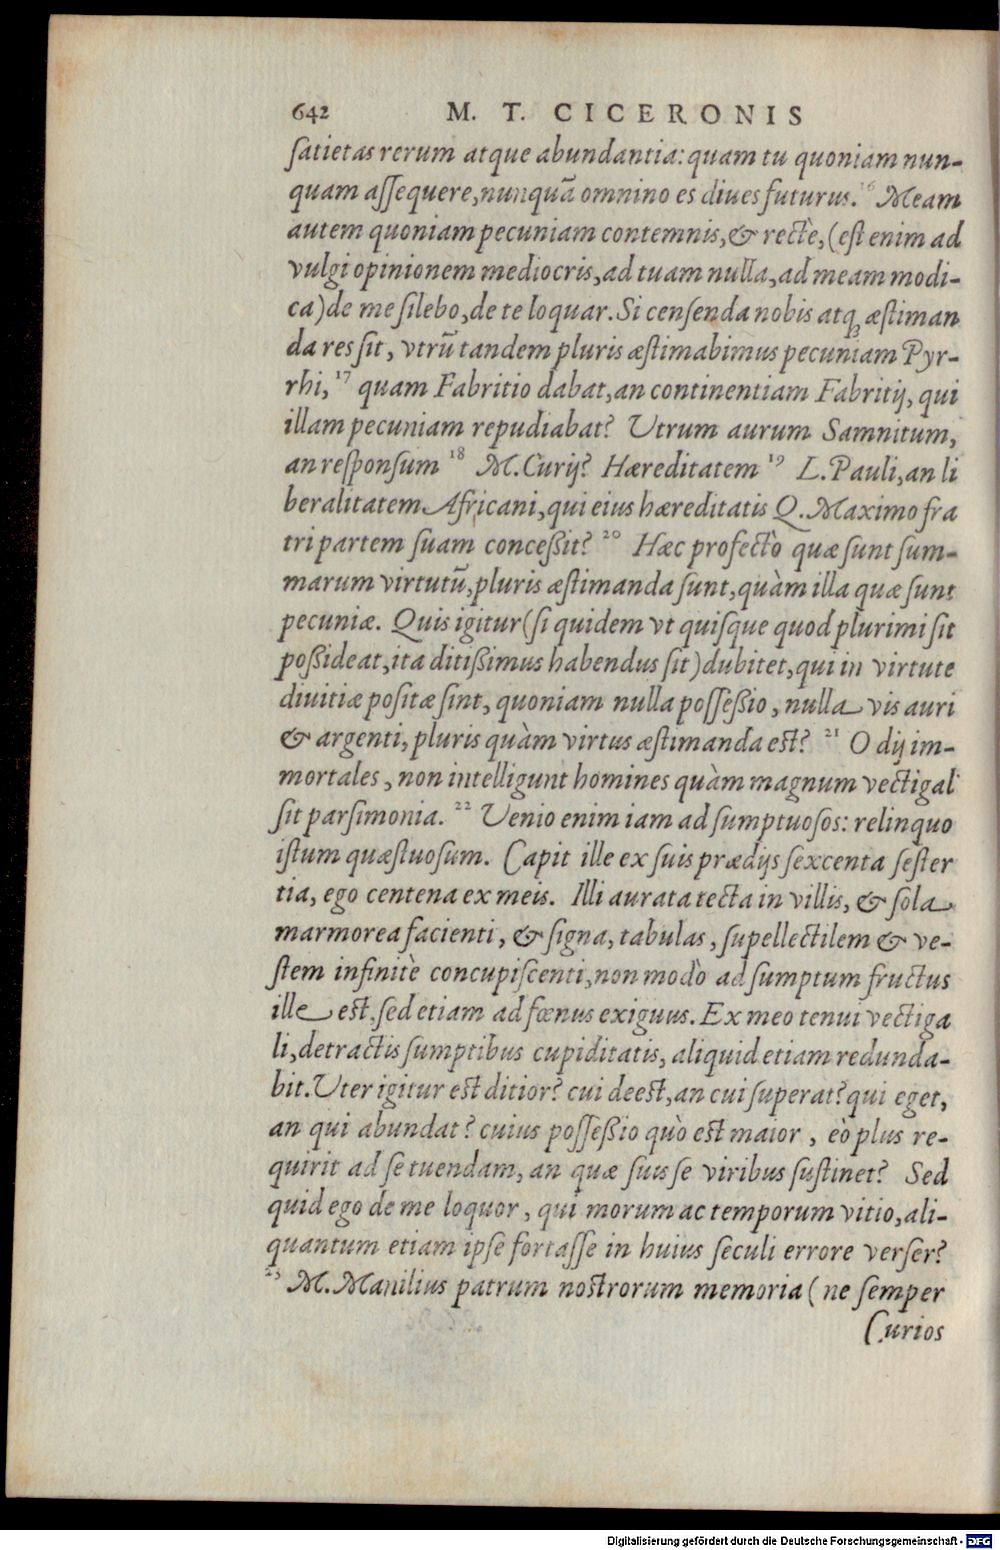 642 M. T. CICERONIS
ſatietas rerum atque abundantia: quam tu quoniam nun-
quam aſſequere, nunquã omnino es diues futurus. 16 Meam
autem quoniam pecuniam contemnis, & rectè, (est enim ad
vulgi opinionem mediocris, ad tuam nulla, ad meam modi-
ca) de me ſilebo, de te loquar. Si cenſenda nobis atq; æſtiman
da res ſit, vtrũ tandem pluris æſtimabimus pecuniam Pyr-
rhi, 17 quam Fabritio dabat, an continentiam Fabritij, qui
illam pecuniam repudiabat? Utrum aurum Samnitum,
an reſponſum 18 M. Curij? Hæreditatem 19 L. Pauli, an li
beralitatem Africani, qui eius hæreditatis Q. Maximo fra
tri partem ſuam conceßit? 20 Hæc profectò quæ ſunt ſum-
marum virtutũ, pluris æſtimanda ſunt, quàm illa quæ ſunt
pecuniæ. Quis igitur (ſi quidem vt quiſque quod plurimi ſit
poßideat, ita ditißimus habendus ſit) dubitet, qui in virtute
diuitiæ poſitæ ſint, quoniam nulla poſſeßio, nulla vis auri
& argenti, pluris quàm virtus æſtimanda est? 21 O dij im-
mortales, non intelligunt homines quàm magnum vectigal
ſit parſimonia. 22 Uenio enim iam ad ſumptuoſos: relinquo
iſtum quæſtuoſum. Capit ille ex ſuis prædijs ſexcenta ſeſter
tia, ego centena ex meis. Illi aurata tecta in villis, & ſola
marmorea facienti, & ſigna, tabulas, ſupellectilem & ve-
ſtem infinitè concupiſcenti, non modò ad ſumptum fructus
ille est, ſed etiam ad fœnus exiguus. Ex meo tenui vectiga
li, detractis ſumptibus cupiditatis, aliquid etiam redunda-
bit. Uter igitur est ditior? cui deest, an cui ſuperat? qui eget,
an qui abundat? cuius poſſeßio quò est maior, eò plus re-
quirit ad ſe tuendam, an quæ ſuis ſe viribus ſuſtinet? Sed
quid ego de me loquor, qui morum ac temporum vitio, ali-
quantum etiam ipſe fortaſſe in huius ſeculi errore verſer?
23 M. Manilius patrum nostrorum memoria (ne ſemper
Curios
Digitalisierung gefördert durch die Deutsche Forschungsgemeinschaft - DFG